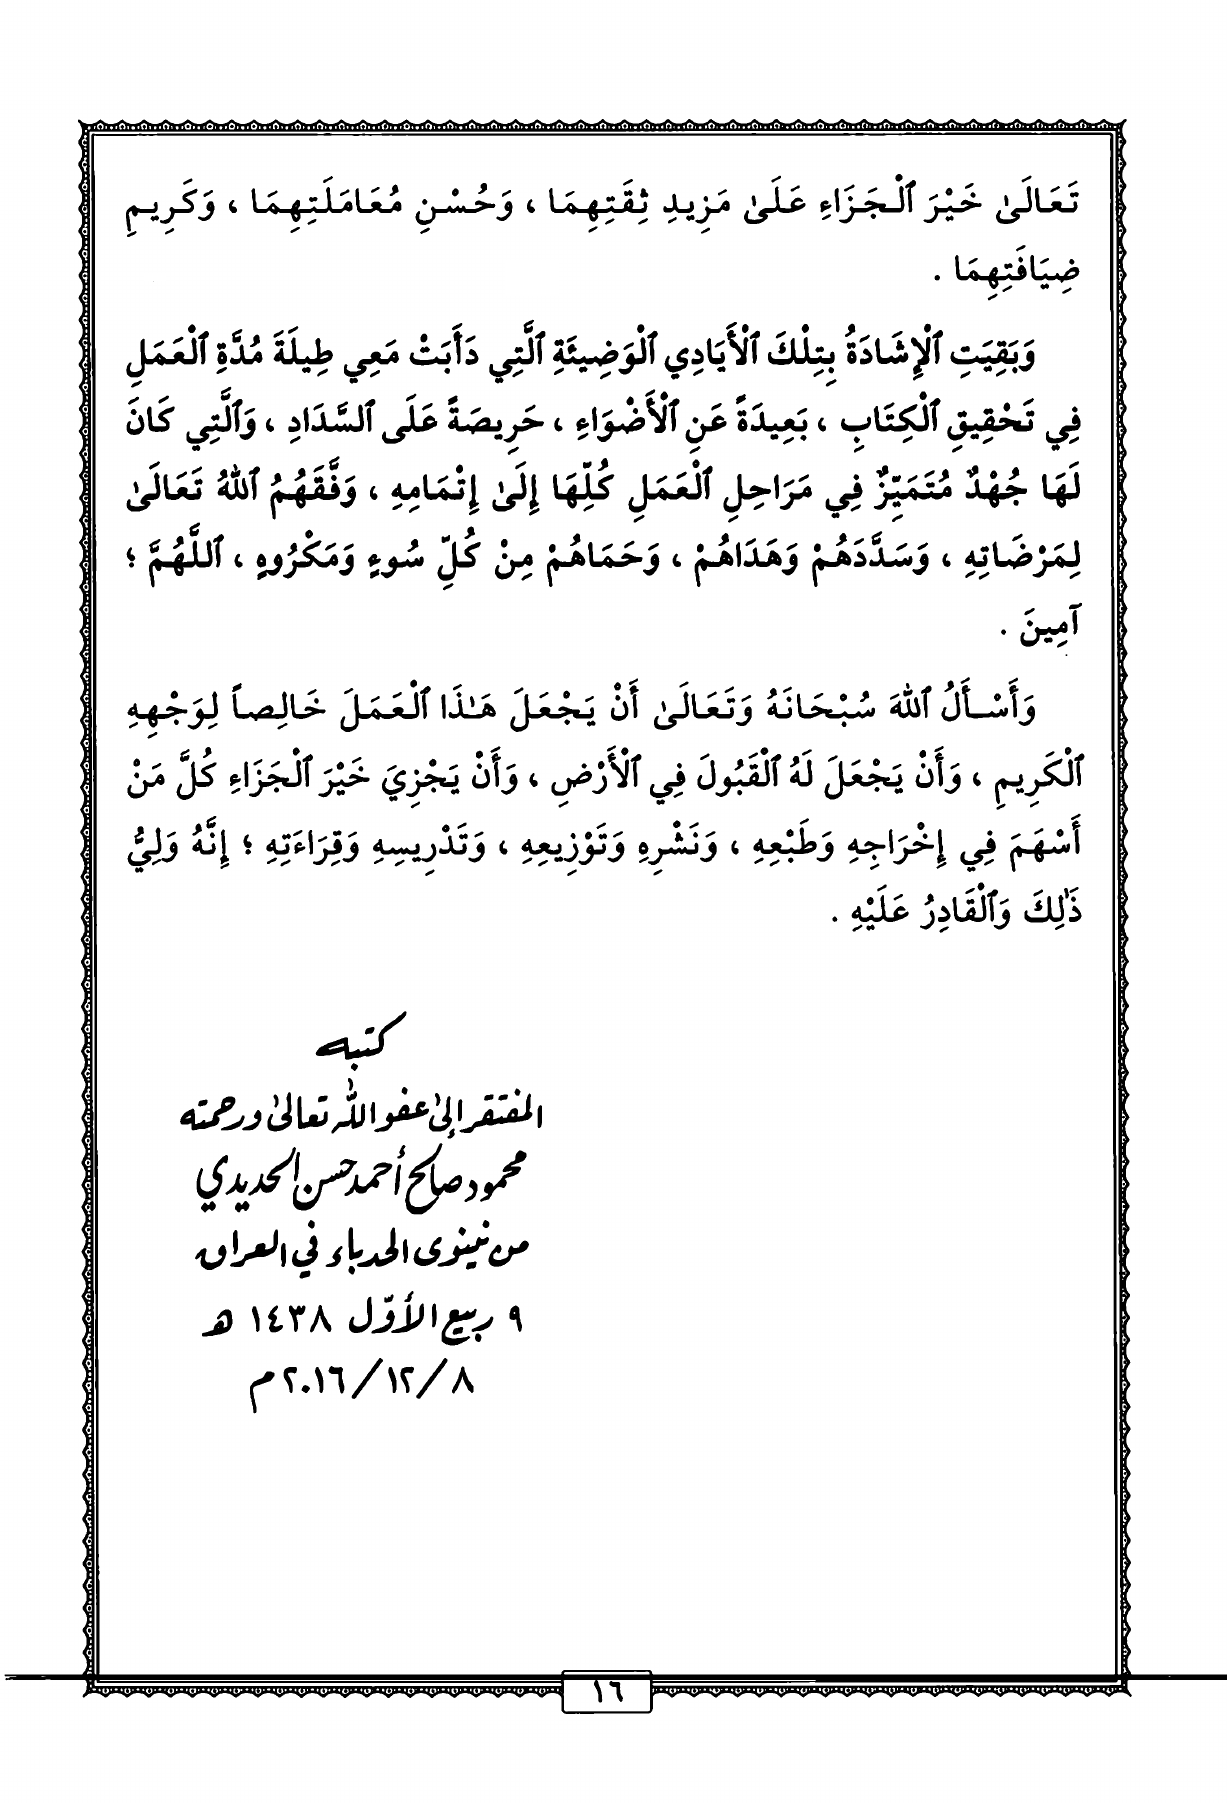 تَعَالَىٰ خَيْرَ ٱلْجَزَاءِ عَلَىٰ مَزِيدِ ثِقَتِهِمَا ، وَحُسْنِ مُعَامَلَتِهِمَا ، وَكَرِيمِ
ضِيَافَتِهِمَا .
وَبَقِيَتِ ٱلْإِشَادَةُ بِتِلْكَ ٱلْأَيَادِي ٱلْوَضِيئَةِ ٱلَّتِي دَأَبَتْ مَعِي طِيلَةَ مُدَّةِ ٱلْعَمَلِ
فِي تَحْقِيقِ ٱلْكِتَابِ ، بَعِيدَةً عَنِ ٱلْأَضْوَاءِ ، حَرِيصَةً عَلَى ٱلسَّدَادِ ، وَٱلَّتِي كَانَ
لَهَا جُهْدٌ مُتَمَيِّزٌ فِي مَرَاحِلِ ٱلْعَمَلِ كُلِّهَا إِلَىٰ إِتْمَامِهِ ، وَفَّقَهُمُ ٱللهُ تَعَالَىٰ
لِمَرْضَاتِهِ ، وَسَدَّدَهُمْ وَهَدَاهُمْ ، وَحَمَاهُمْ مِنْ كُلِّ سُوءٍ وَمَكْرُوهٍ ، اَللَّهُمَّ ؛
آمِينَ .
وَأَسْأَلُ ٱللهَ سُبْحَانَهُ وَتَعَالَىٰ أَنْ يَجْعَلَ هَـٰذَا ٱلْعَمَلَ خَالِصاً لِوَجْهِهِ
ٱلْكَرِيمِ ، وَأَنْ يَجْعَلَ لَهُ ٱلْقَبُولَ فِي ٱلْأَرْضِ ، وَأَنْ يَجْزِيَ خَيْرَ ٱلْجَزَاءِ كُلَّ مَنْ
أَسْهَمَ فِي إِخْرَاجِهِ وَطَبْعِهِ ، وَنَشْرِهِ وَتَوْزِيعِهِ ، وَتَدْرِيسِهِ وَقِرَاءَتِهِ ؛ إِنَّهُ وَلِيُّ
ذَٰلِكَ وَٱلْقَادِرُ عَلَيْهِ .
كتبه
المفتقر إلىٰ عفو الله تعالىٰ ورحمته
محمود صالح أحمد حسن الحديدي
من نينوى الحدباء في العراق
٩ ربيع الأوّل ١٤٣٨ هـ
٨/١٢/٢٠١٦م
١٦